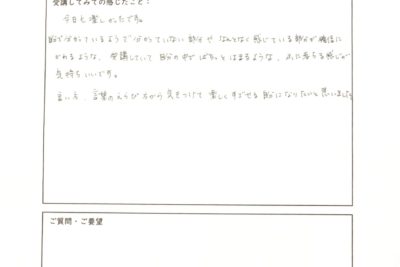 受講してみての感じたこと：
今日も楽しかったです。
自分でわかっているようでわかっていない部分や なんとなく感じている部分が確信に
かわるような、受講していて 自分の中で ぱちっと はまるような、ふに落ちる感じが
気持ちいいです。
言い方、言葉のえらび方から 気をつけて 楽しくすごせる 自分になりたいと思いました
ご質問・ご要望